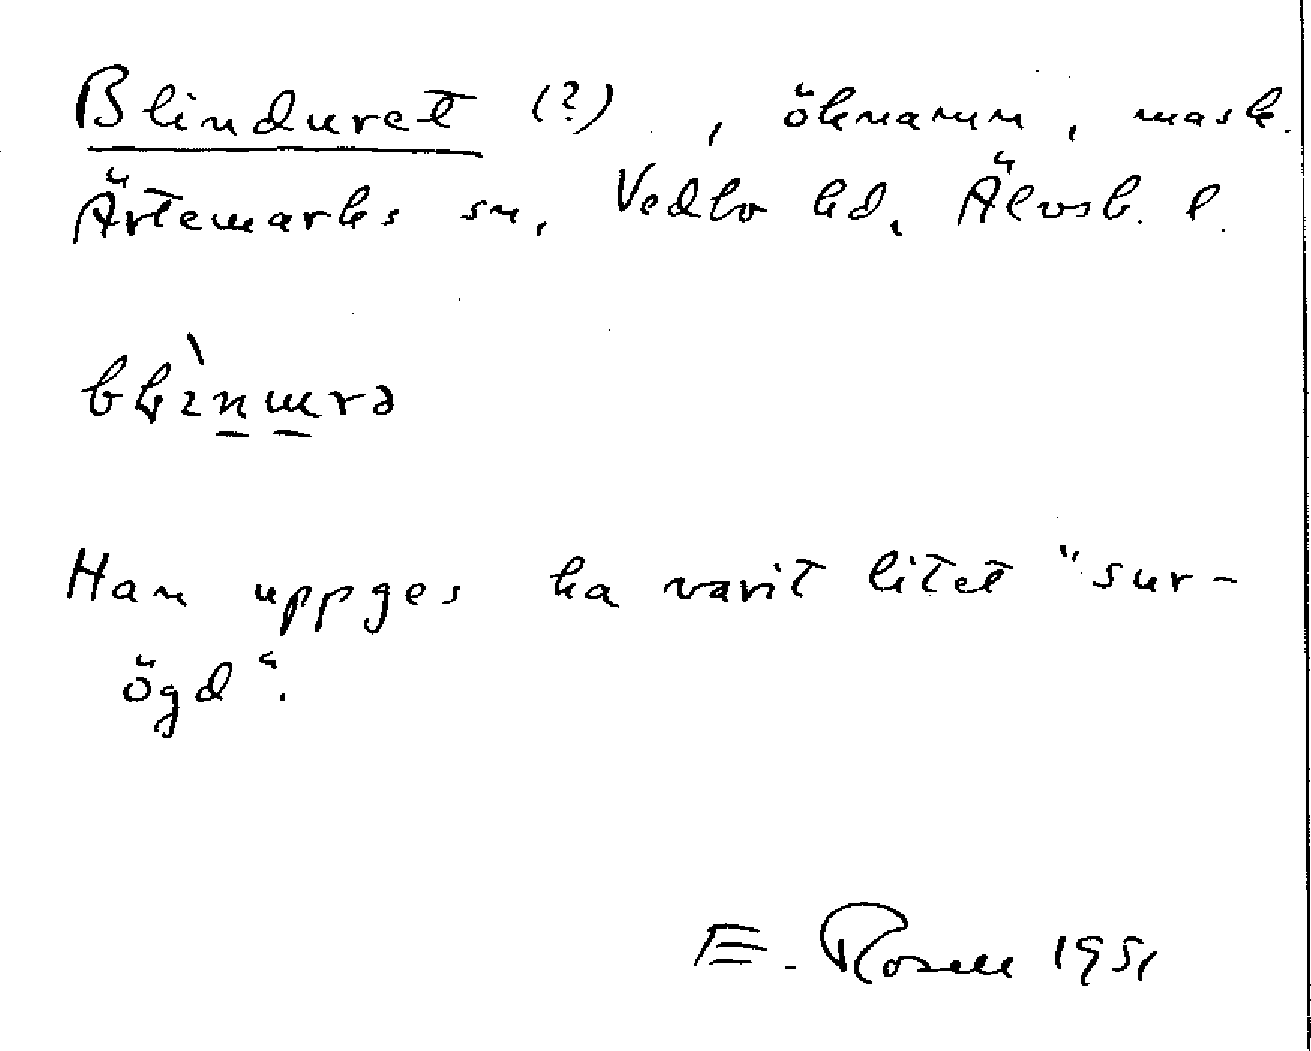 Blinduret (?) , öknamn, mask.
Ärtemarks sn, Vedbo hd, Älvsb. l.
Han uppges ha varit litet "sur-
ögd".
E. Rosell 1951